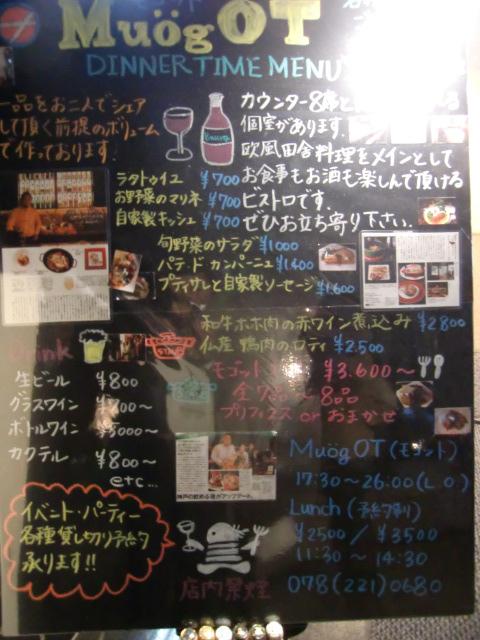 MuögOT
DINNERTIME MENU
一品をお二人でシェア
して頂く前提のボリューム
で作っております。
カウンター8席と
個室があります。
欧風田舎料理をメインとして
お食事もお酒も楽しんで頂ける
ビストロです。
ぜひお立ち寄り下さい。
ラタトゥイユ ¥700
お野菜のマリネ ¥700
自家製キッシュ ¥700
旬野菜のサラダ ¥1000
パテ・ド カンパーニュ ¥1,400
プティサレと自家製ソーセージ ¥1,600
和牛ホホ肉の赤ワイン煮込み ¥2800
仏産 鴨肉のロティ ¥2,500
¥3.600〜
全7品〜8品
プリフィクス or おまかせ
Drink
生ビール ¥800
グラスワイン 00〜
ボトルワイン 000〜
カクテル ¥800〜
etc...
イベント・パーティー
各種貸し切り予約
承ります!!
MuögOT (モゴット)
17:30〜26:00(L.O)
Lunch (予約制)
¥2500 / ¥3500
11:30〜14:30
078(221)0680
店内禁煙